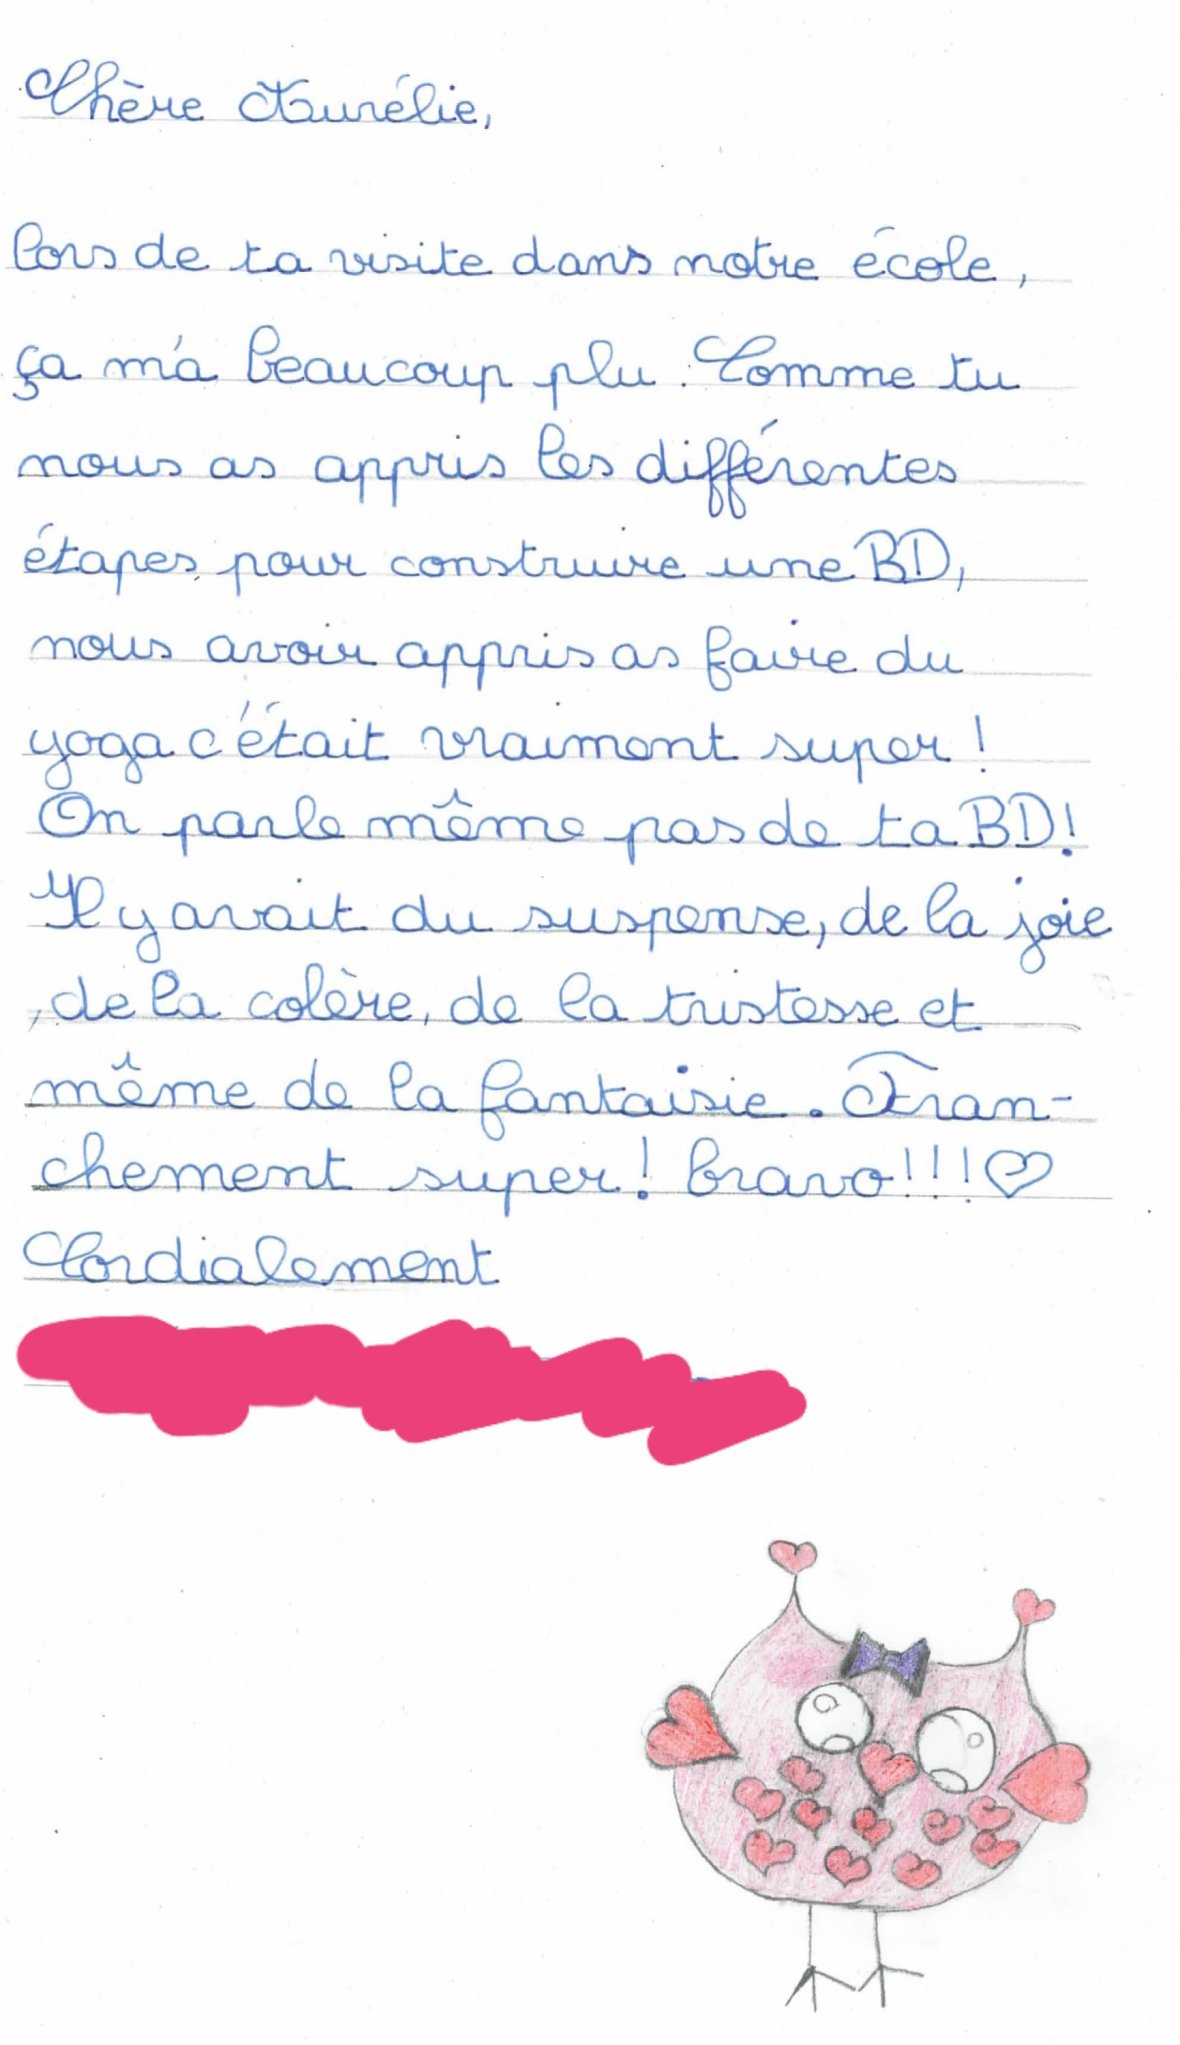 Chère Aurélie,
lors de ta visite dans notre école,
ça m'a beaucoup plu. Comme tu
nous as appris les différentes
étapes pour construire une BD,
nous avoir appris as faire du
yoga c'était vraiment super !
On parle même pas de ta BD!
Il y avait du suspense, de la joie
, de la colère, de la tristesse et
même de la fantaisie. Fran-
chement super! bravo!!!♡
Cordialement